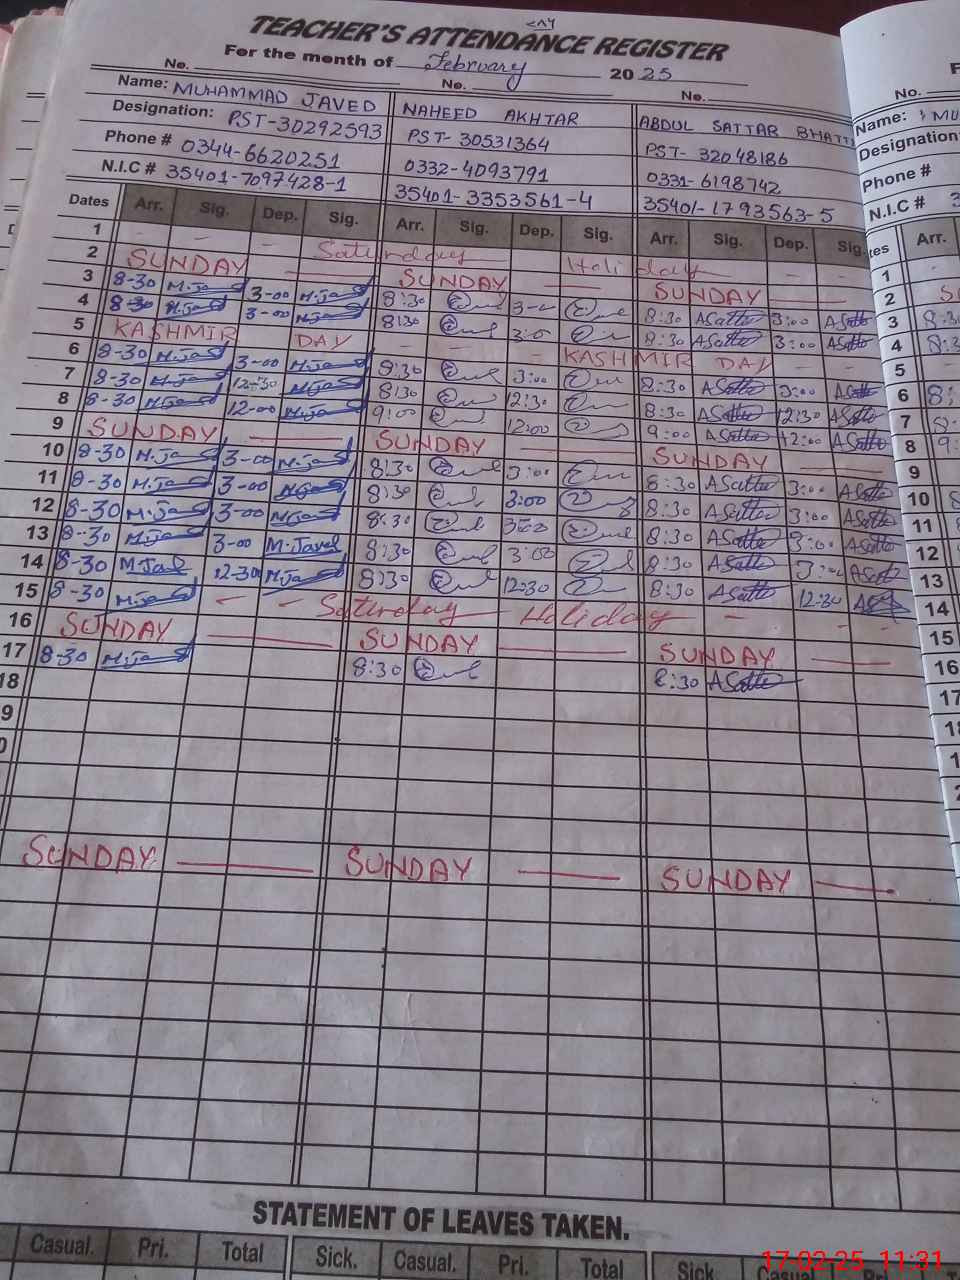 TEACHER'S ATTENDANCE REGISTER
For the month of February 2025
No. No. No.
Name: MUHAMMAD JAVED NAHEED AKHTAR ABDUL SATTAR BHATTI
Designation: PST-30292593 PST-30531364 PST-32048186
Phone # 0344-6620251 0332-4093791 0331-6198742
N.I.C # 35401-7097428-1 35401-3353561-4 35401-1793563-5
Dates Arr. Sig. Dep. Sig. Arr. Sig. Dep. Sig. Arr. Sig. Dep. Sig.
1 Saturday Holiday
2 SUNDAY SUNDAY SUNDAY
3 8-30 M.Javed 3-00 M.Javed 8:30 3-00 8:30 ASatter 3:00 ASatter
4 8-30 M.Javed 3-00 M.Javed 8:30 3:00 8:30 ASatter 3:00 ASatter
5 KASHMIR DAY KASHMIR DAY
6 8-30 M.Javed 3-00 M.Javed 8:30 3:00 8:30 ASatter 3:00 ASatter
7 8-30 M.Javed 12-30 M.Javed 8:30 12:30 8:30 ASatter 12:30 ASatter
8 8-30 M.Javed 12-00 M.Javed 9:00 12:00 9:00 ASatter 12:00 ASatter
9 SUNDAY SUNDAY SUNDAY
10 8-30 M.Javed 3-00 M.Javed 8:30 3:00 8:30 ASatter 3:00 ASatter
11 8-30 M.Javed 3-00 M.Javed 8:30 3:00 8:30 ASatter 3:00 ASatter
12 8-30 M.Javed 3-00 M.Javed 8:30 3:00 8:30 ASatter 3:00 ASatter
13 8-30 M.Javed 3-00 M.Javed 8:30 3:00 8:30 ASatter 3:00 ASatter
14 8-30 M.Javed 12-30 M.Javed 8:30 12:30 8:30 ASatter 12:30
15 8-30 M.Javed Saturday Holiday
16 SUNDAY SUNDAY SUNDAY
17 8-30 M.Javed 8:30 8:30 ASatter
18
9
0
SUNDAY SUNDAY SUNDAY
STATEMENT OF LEAVES TAKEN.
Casual. Pri. Total Sick. Casual. Pri. Total Sick. Casual Pri. Total
17-02-25 11:31
No.
Name: MU
Designation
Phone #
N.I.C # 3
tes Arr.
1
2
3 8-3
4 8:3
5
6 8:
7 8-
8 9:
9
10
11
12
13
14
15
16
17